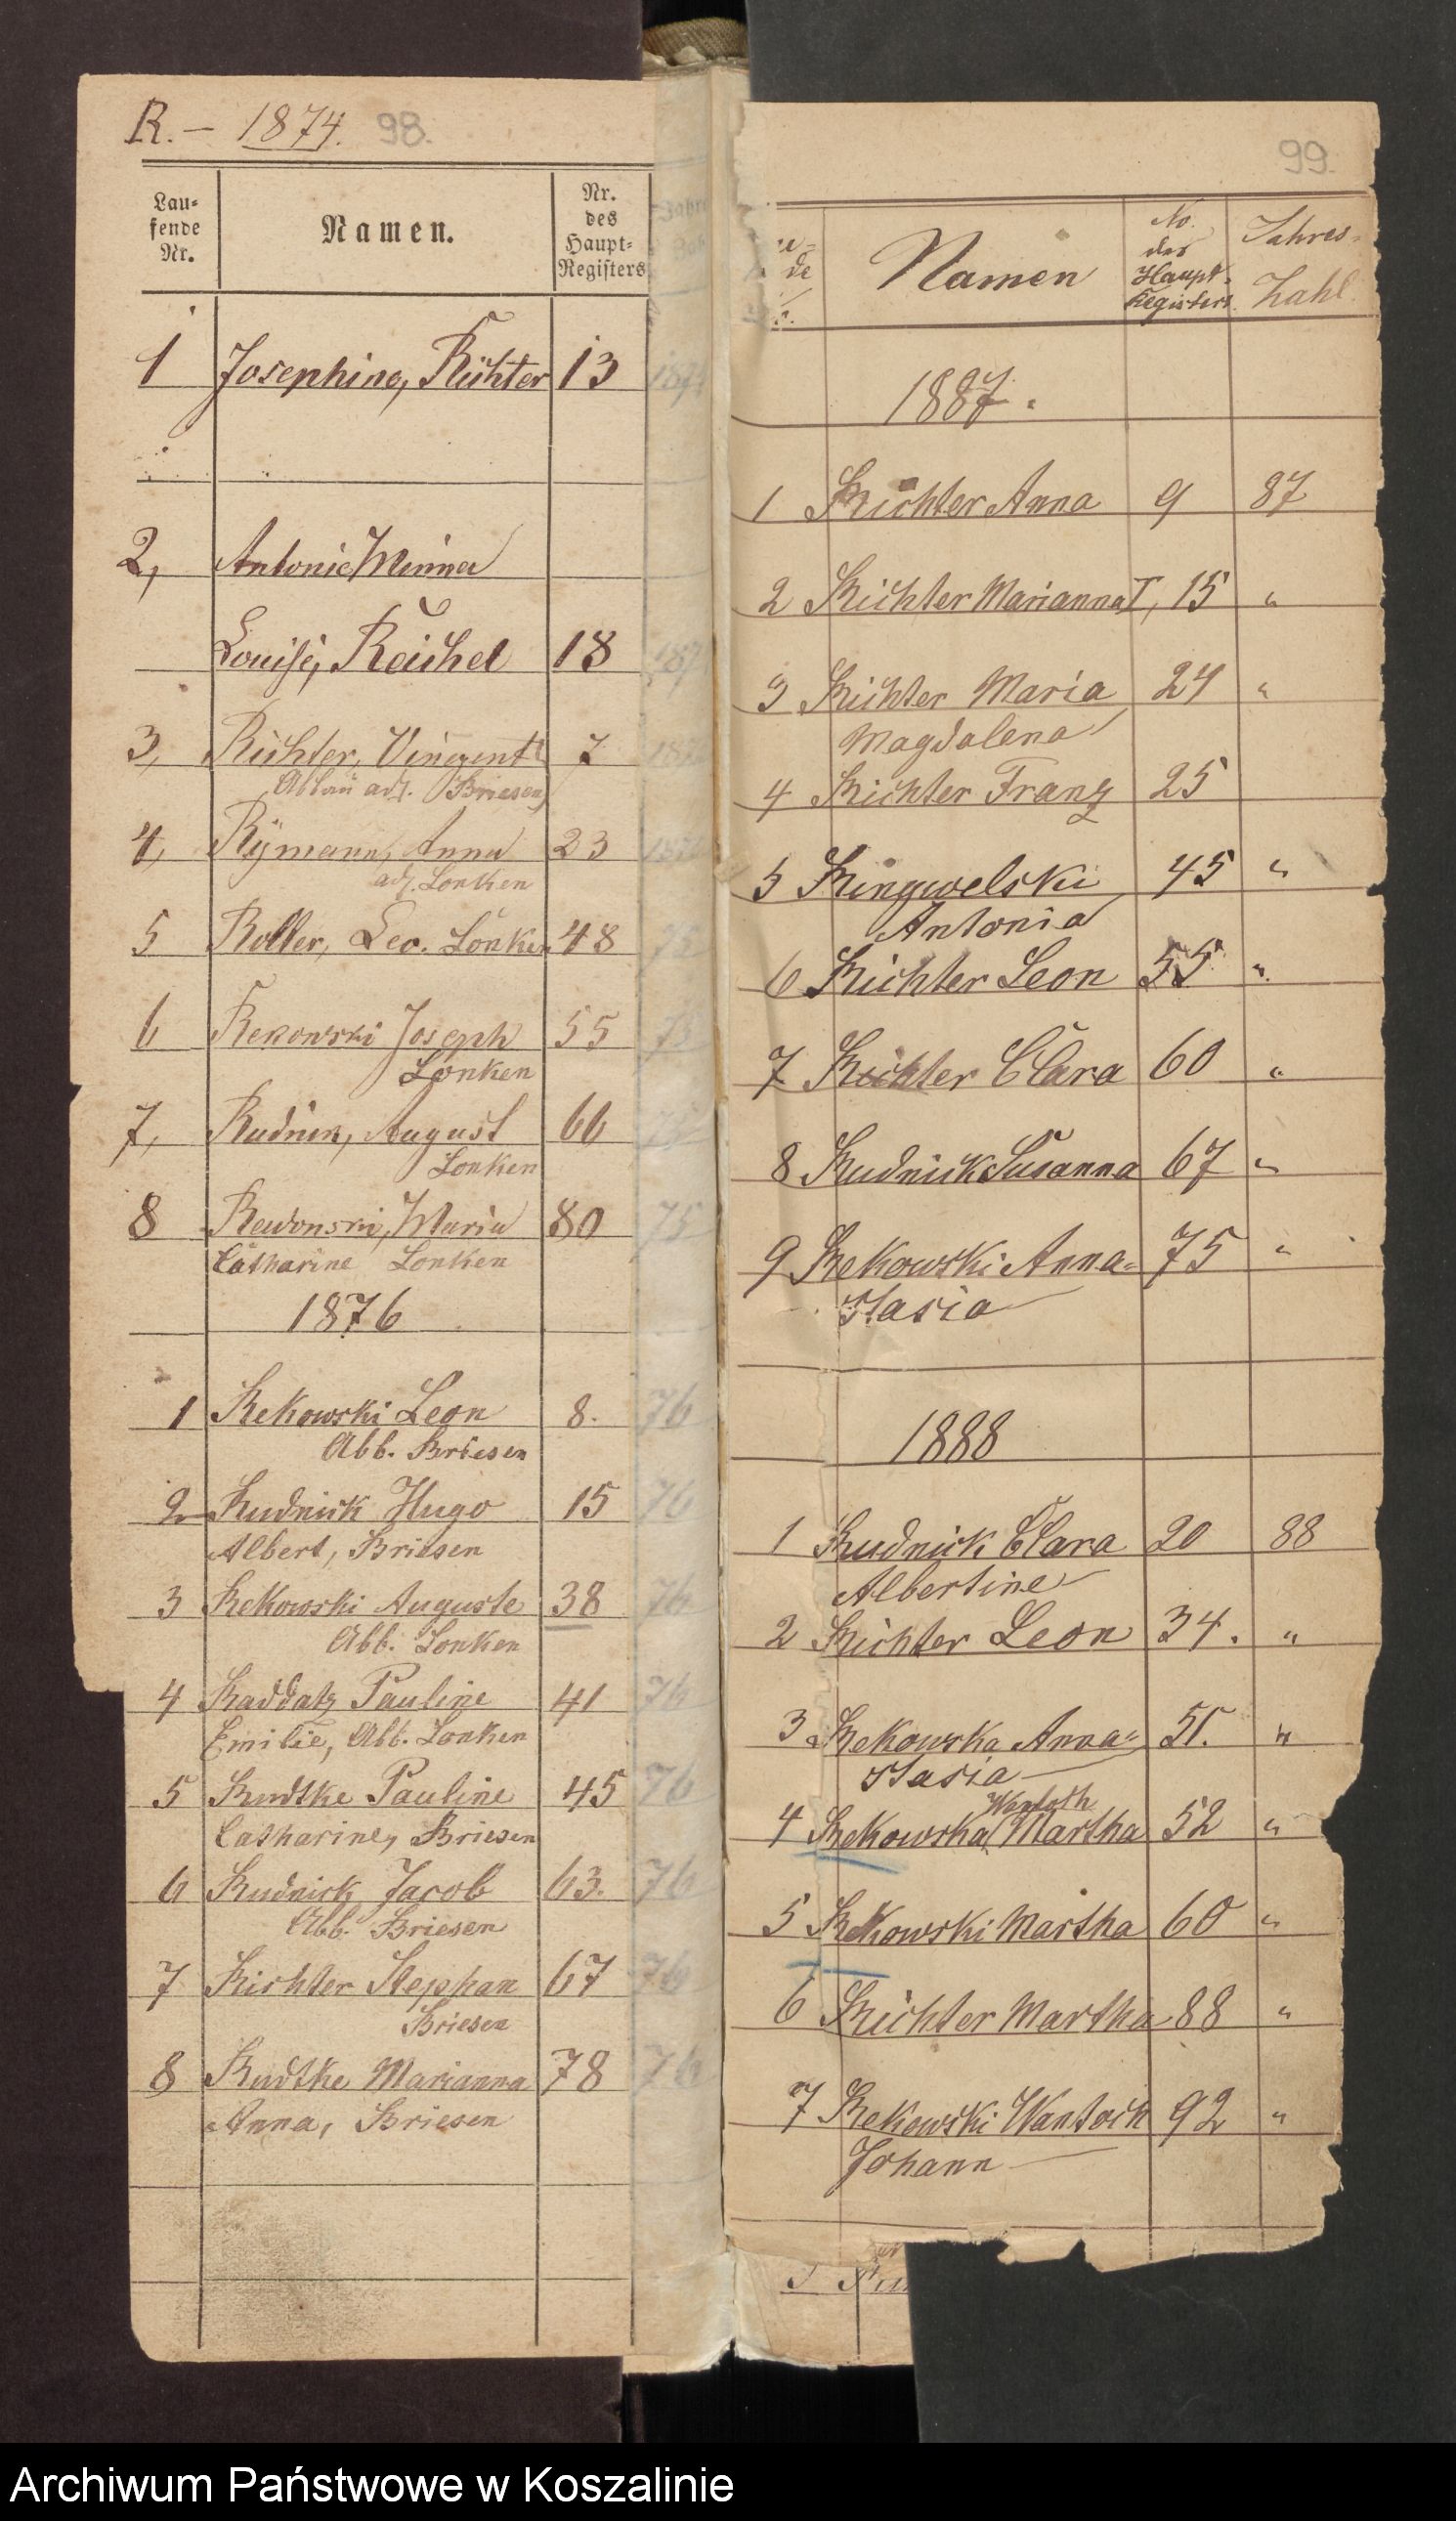 R. – 1874. 98.
Lau-
fende
Nr.
Namen.
Nr.
des
Haupt-
Registers
1 Josephine, Richter 13
2, Antonie Minna
Louise, Reichel 18
3, Richter, Vinzent 7
Abbau adl. Briesen
4, Rÿmann, Anna 23
adl. Lonken
5 Roller, Leo. Lonken 48 75
6 Rekowski Joseph 55 75
Lonken
7, Rudnick, August 66
Lonken
8 Rekowski, Maria 80 75
Catharine Lonken
1876
1 Rekowski Leon 8. 76
Abb. Briesen
2 Rudnick Hugo 15 76
Albert, Briesen
3 Rekowski Auguste 38 76
Abb. Lonken
4 Raddatz Pauline 41 76
Emilie, Abb. Lonken
5 Rudtke Pauline 45 76
Catharine, Briesen
6 Rudnick Jacob 63. 76
Abb. Briesen
7 Richter Stephan 67 76
Briesen
8 Rudtke Marianna 78 76
Anna, Briesen
99.
Namen
No.
des
Haupt-
Registers
Jahres-
Zahl
1887.
1 Richter Anna 9 87
2 Richter Marianna T, 15 "
3 Richter Maria 24 "
Magdalena
4 Richter Franz 25
5 Ringwelski 45 "
Antonia
6 Richter Leon 55 "
7 Richter Clara 60 "
8 Rudnick Susanna 67 "
9 Rekowski Anna= 75 "
stasia
1888
1 Rudnick Clara 20 88
Albertine
2 Richter Leon 34. "
3 Rekowska Anna= 51. "
stasia
Wantoch
4 Rekowska, Martha 52 "
5 Rekowski Martha 60 "
6 Richter Martha 88 "
7 Rekowski Wantoch 92 "
Johann
Archiwum Państwowe w Koszalinie